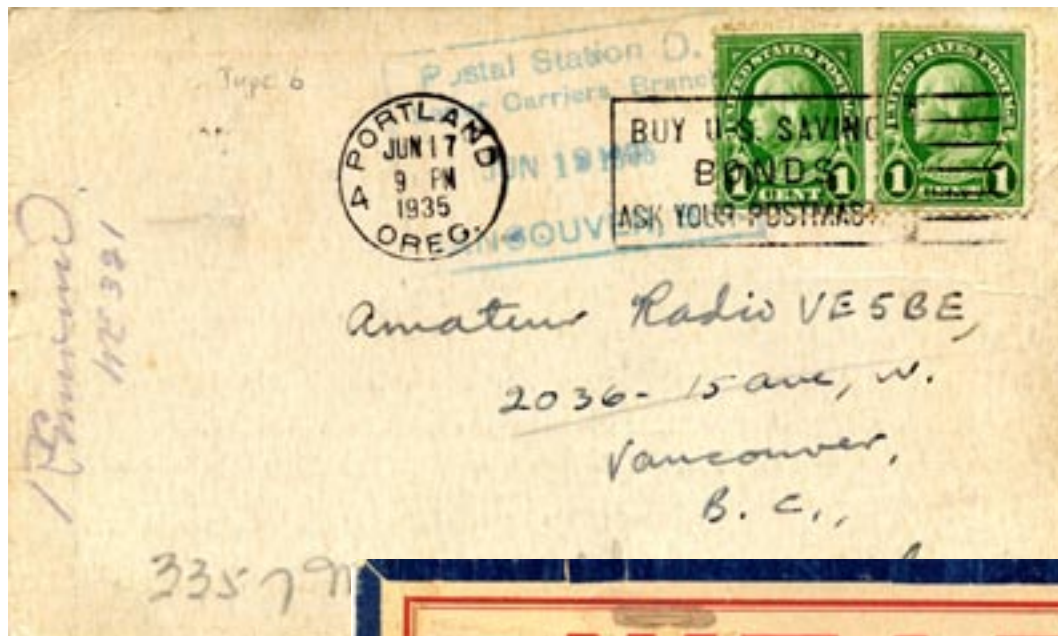 Type 6
Postal Station D.
Carriers Branch
JUN 19 1935
VANCOUVER,
PORTLAND
JUN 17
9 PM
1935
4
OREG.
BUY U.S. SAVING
BONDS
ASK YOUR POSTMAST
UNITED STATES POSTAGE
1 CENT 1
UNITED STATES POSTAGE
1 CENT 1
Amateur Radio VE5BE,
2036- 15 ave, W.
Vancouver,
B. C.,
3357